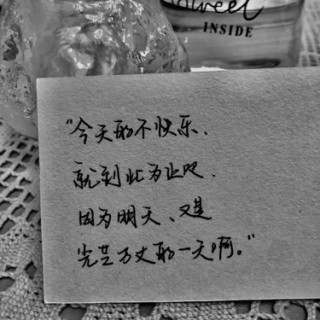 sweet
INSIDE
“今天的不快乐、
就到此为止吧、
因为明天、又是
光芒万丈的一天啊。”